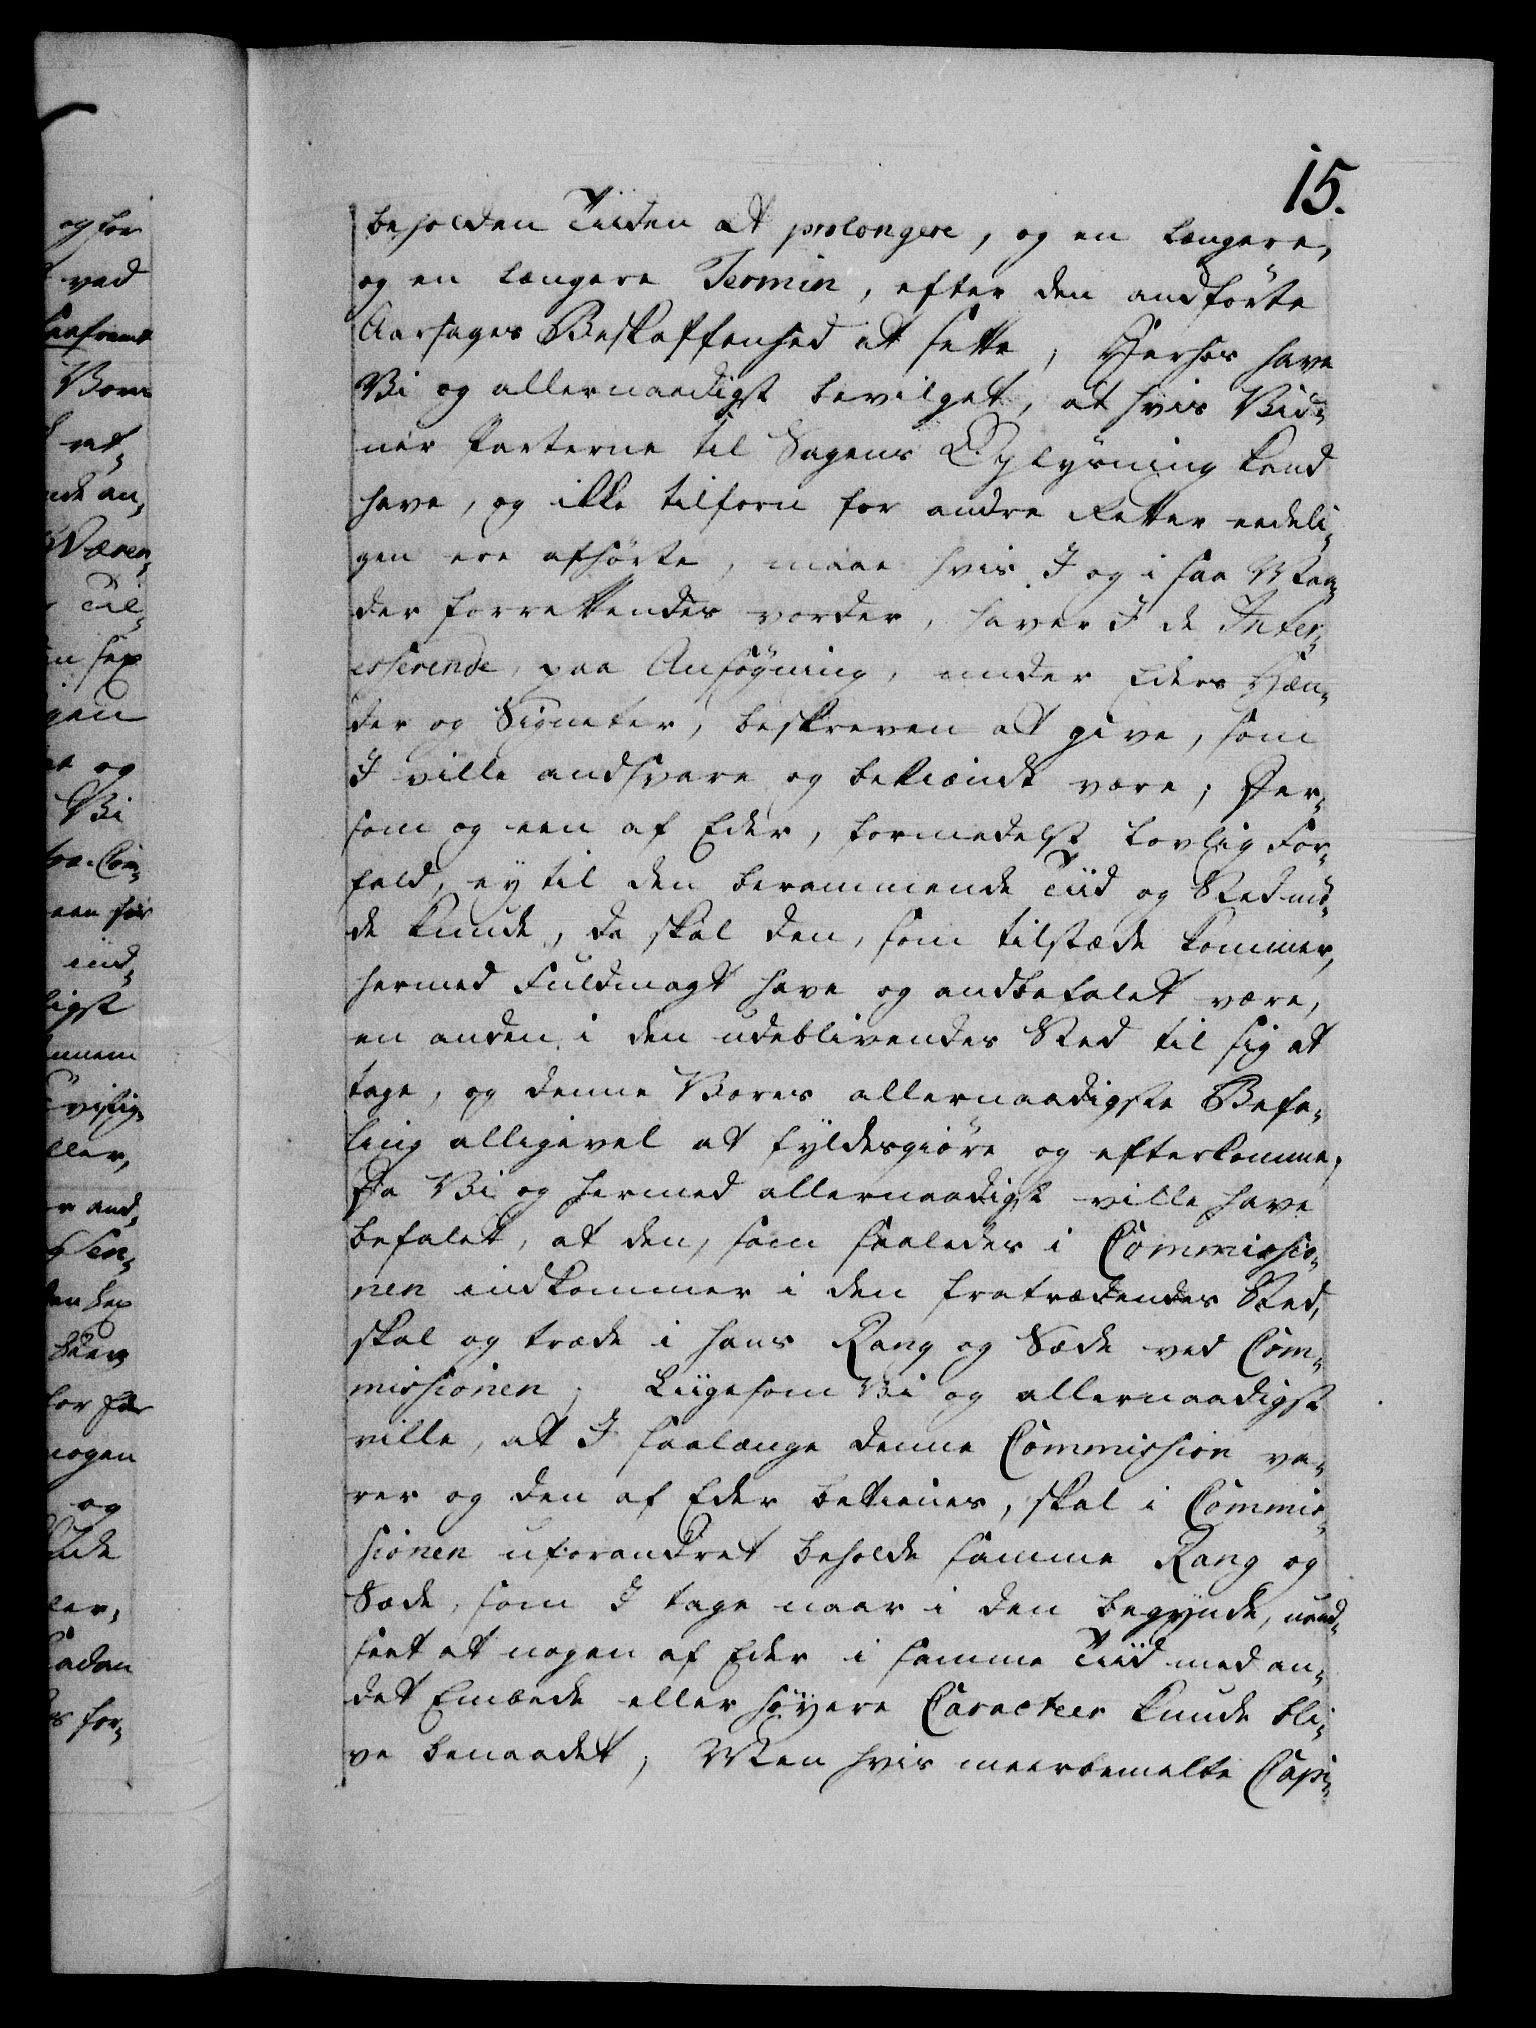 15.
beholden Tiiden at prolongere, og en længere,
og en længere Termin, efter den andförte
Aarsages Beskaffenhed at sette; Herhos have
Vi og allernaadigst bevilget, at hvis Vid¬
ner Parterne til Sagens Oplysning kand
have, og ikke tilforn for andre Retter eedeli¬
gen ere afhörte, maae hvis I og i saa Maa¬
der forrettendes vorder, haver I de Inter¬
esserende, paa Ansögning, under Eders Hæn¬
der og Signeter, beskreven at give, som
I ville andsvare og bekiendt være; Der¬
som og een af Eder, formedelst lovlig For¬
fald, ey til den berammende Tiid og Sted mö¬
de kunde, da skal den, som tilstæde kommer,
hermed Fuldmagt have og andbefalet være,
en anden i den udeblivendes Sted til sig at
tage, og denne Vores allernaadigste Befa¬
ling alligevel at fyldesgiöre og efterkomme;
Da Vi og hermed allernaadigst ville have
befalet, at den, som saaledes i Commissio¬
nen indkommer i den fratrædendes Sted,
skal og træde i hans Rang og Sæde ved Com¬
missionen; Liigesom Vi og allernaadigst
ville, at I saalænge denne Commission va¬
rer og den af Eder betienes, skal i Commis¬
sionen uforandret beholde samme Rang og
Sæde, som I tage naar i den begynde, uand¬
seet at nogen af Eder i samme Tiid med an¬
det Embede eller höyere Caracteer kunde bli¬
ve benaadet; Men hvis meerbemelte Capi¬